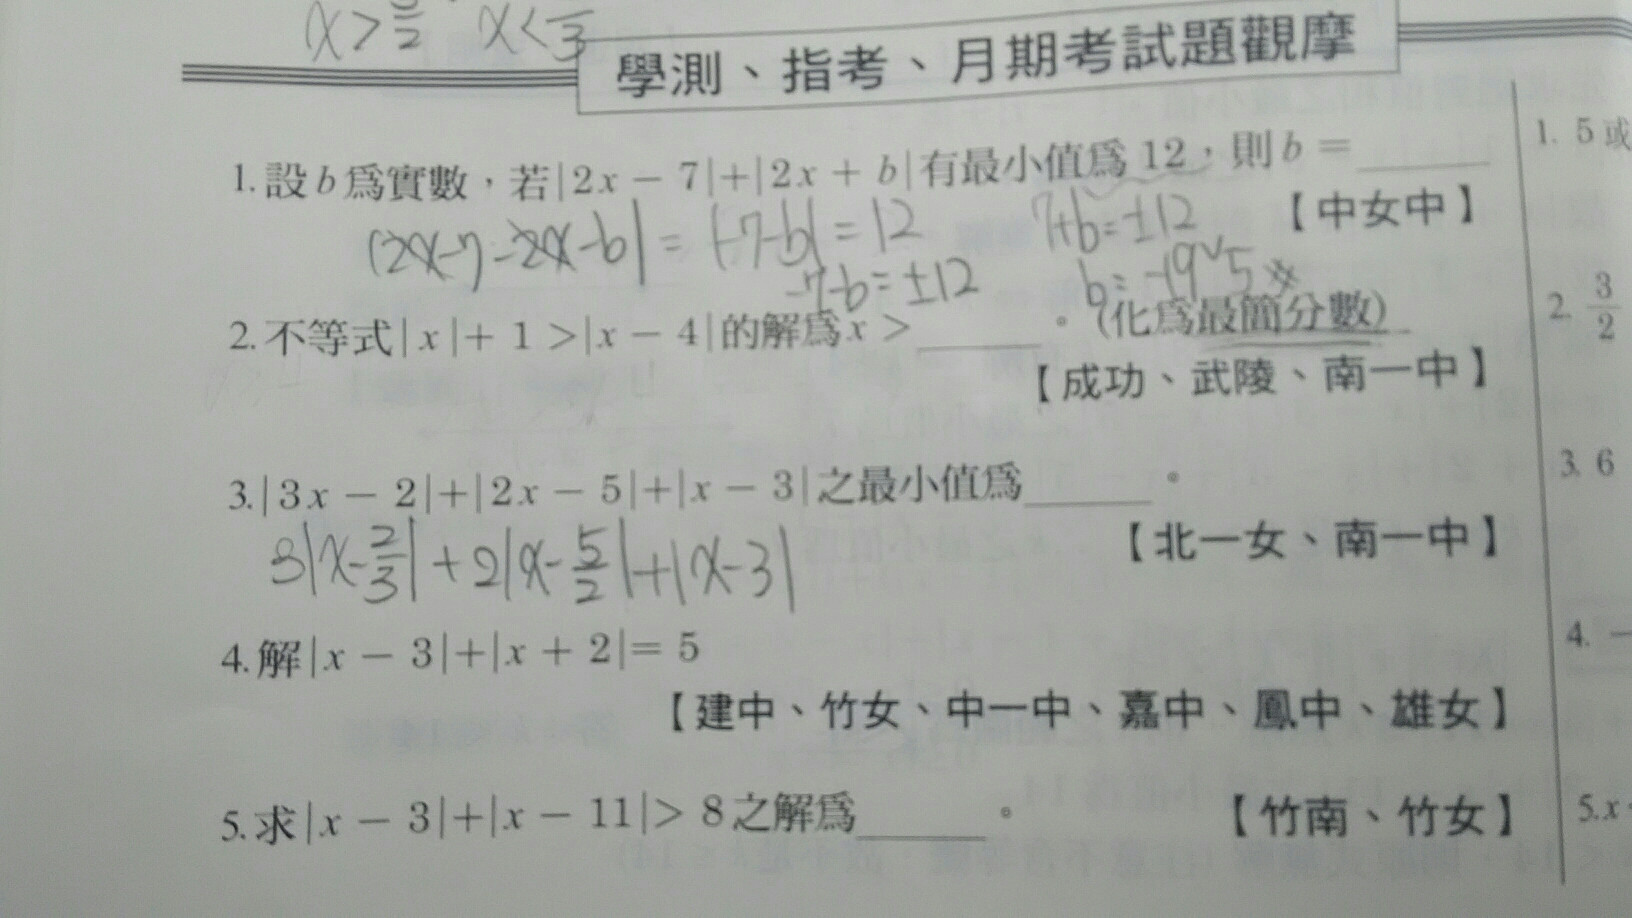 x > 3/2  x <
學測、指考、月期考試題觀摩
1. 設 b 爲實數，若 |2x − 7|+|2x + b| 有最小值爲 12，則 b = ______
【中女中】
|2x-7-2x-b| = |-7-b| = 12  7+b=±12
-7-b=±12  b=-19、5
2. 不等式 |x|+ 1 >|x − 4| 的解爲 x > ______。(化爲最簡分數)
【成功、武陵、南一中】
3. |3x − 2|+|2x − 5|+|x − 3| 之最小值爲______。
【北一女、南一中】
3|x-2/3|+2|x-5/2|+|x-3|
4. 解 |x − 3|+|x + 2|= 5
【建中、竹女、中一中、嘉中、鳳中、雄女】
5. 求 |x − 3|+|x − 11|> 8 之解爲______。
【竹南、竹女】
1. 5 或
2. 3/2
3. 6
4. −
5. x